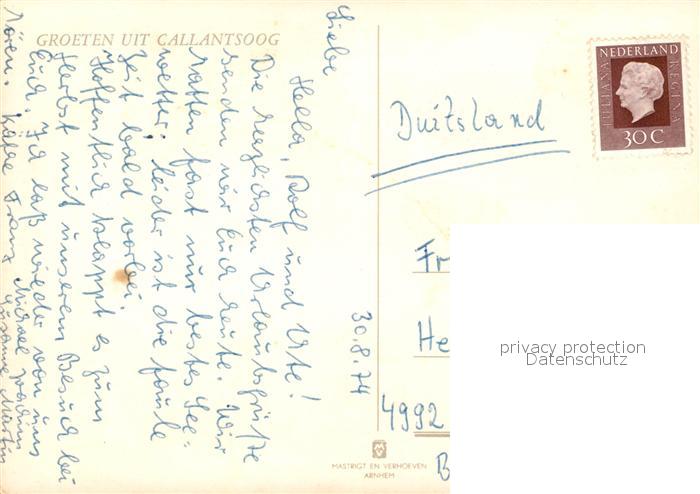 GROETEN UIT CALLANTSOOG
30.8.74
Liebe
Hella, Rolf und Ute!
Die herzlichsten Urlaubsgrüße
senden wir Euch heute. Wir
hatten fast nur bestes Bade-
wetter; leider ist die faule
Zeit bald vorbei.
Hoffentlich klappt es zum
Herbst mit unserem Besuch bei
Euch. Ihr laßt wieder von uns
hören.
NEDERLAND
JULIANA REGINA
30 C
Duitsland
Fr
He
4992
B
privacy protection
Datenschutz
MASTRIGT EN VERHOEVEN
ARNHEM